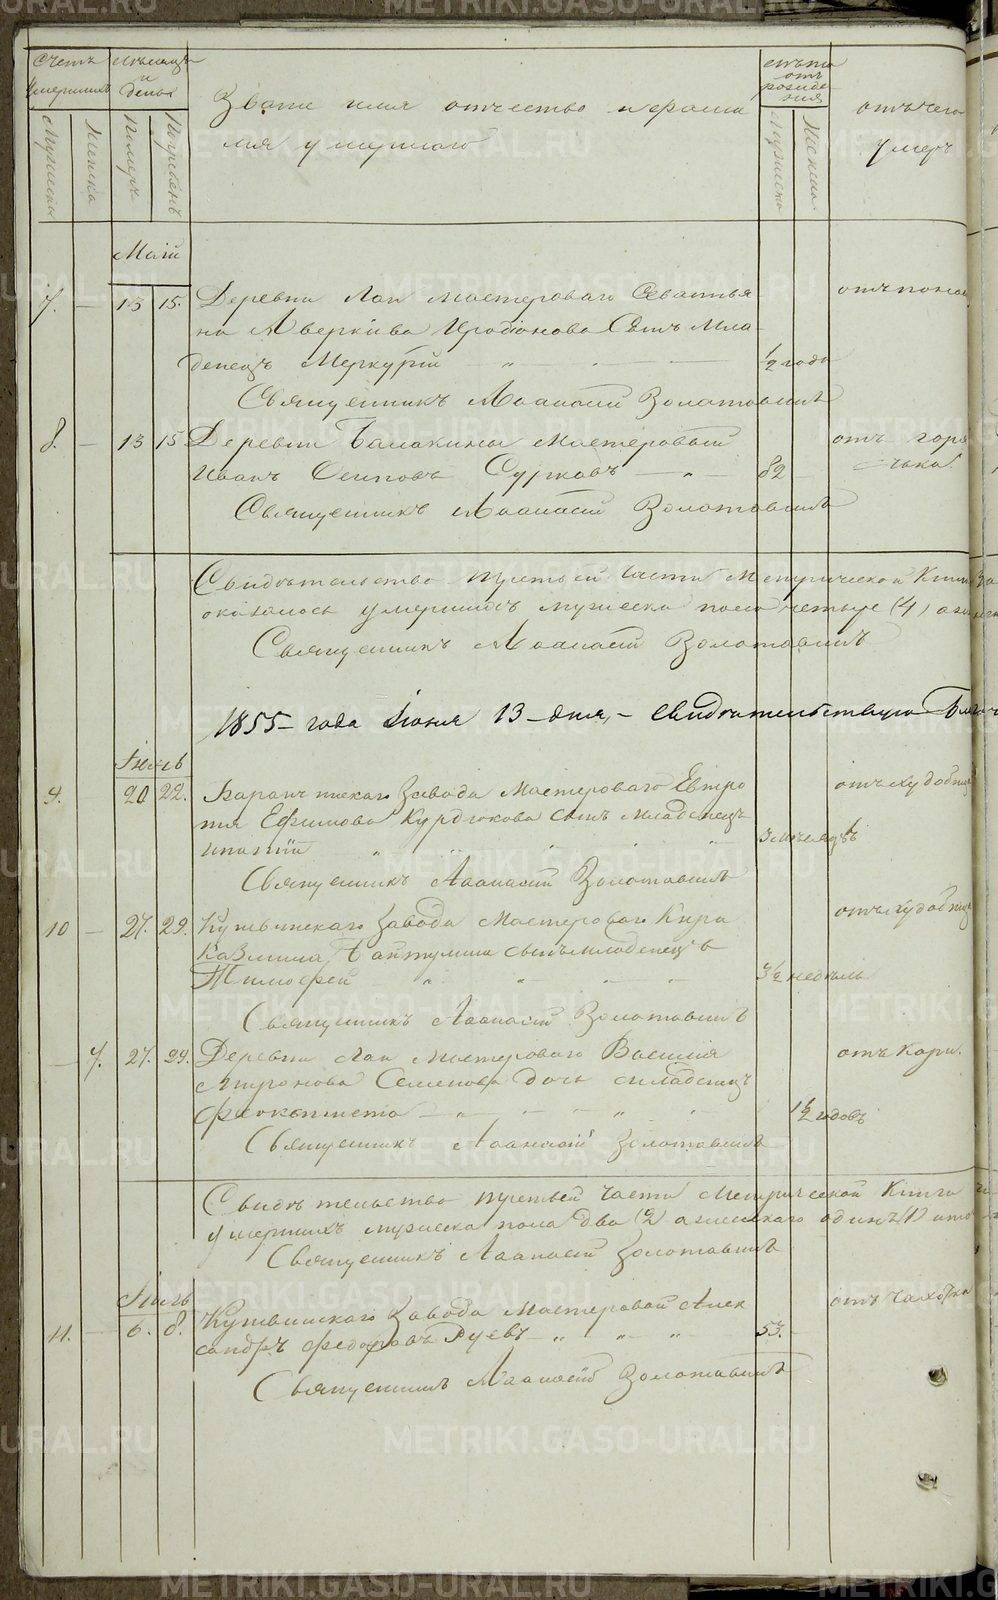 Счетъ умершихъ
Мѣсяцъ и день
Званіе имя отчество и фамилія умершаго
Лѣта отъ рожденія
отъ чего умеръ
Мужеска
Женска
Померъ
Погребенъ
Мужеска
Женска
Маій
7. — 13 15. Деревни Лаи Мастероваго Севастья- отъ поноса
на Аверкіева Иродіонова Сынъ Мла-
денецъ Меркурій — „ — 1/2 года
Священникъ Аѳанасій Золотавинъ
8. — 13 15 Деревни Балакины Мастеровый отъ горя-
Иванъ Осиповъ Сурковъ — „ — 82 чька.
Священникъ Аѳанасій Золотавинъ
Свидѣтельство третьей части Метрической Книги
оказалось умершихъ мужеска пола четыре (4) а
Священникъ Аѳанасій Золотавинъ
1855 – года Іюня 13 – дня, – свидѣтельствую
Іюнь
9. 20 22. Баранчинскаго Завода Мастероваго Евтро- отъ худобища
пія Ефимова Курдюкова сынъ младенецъ
3 мѣсяцъ
Священникъ Аѳанасій Золотавинъ
10 — 27. 29. Кушвинскаго Завода Мастероваго Кира отъ худобища
сынъ младенецъ
Тимоѳей „ „ 3 1/2 недѣль
Священникъ Аѳанасій Золотавинъ
— 7. 27. 29. Деревни Лаи Мастероваго Василія отъ кори.
Миронова Семенова дочь младенецъ
Ѳеоктиста — „ — „ 1 1/2 годовъ
Священникъ Аѳанасій Золотавинъ
Свидѣтельство третьей части Метрической Книги
умершихъ мужеска пола два (2) а женскаго одинъ (1) итого
Священникъ Аѳанасій Золотавинъ
Іюль
11. — 6. 8. Кушвинскаго Завода Мастеровой Алек- отъ чахотки
сандръ Ѳедоровъ — „ „ „ 53.
Священникъ Аѳанасій Золотавинъ
METRIKI.GASO-URAL.RU